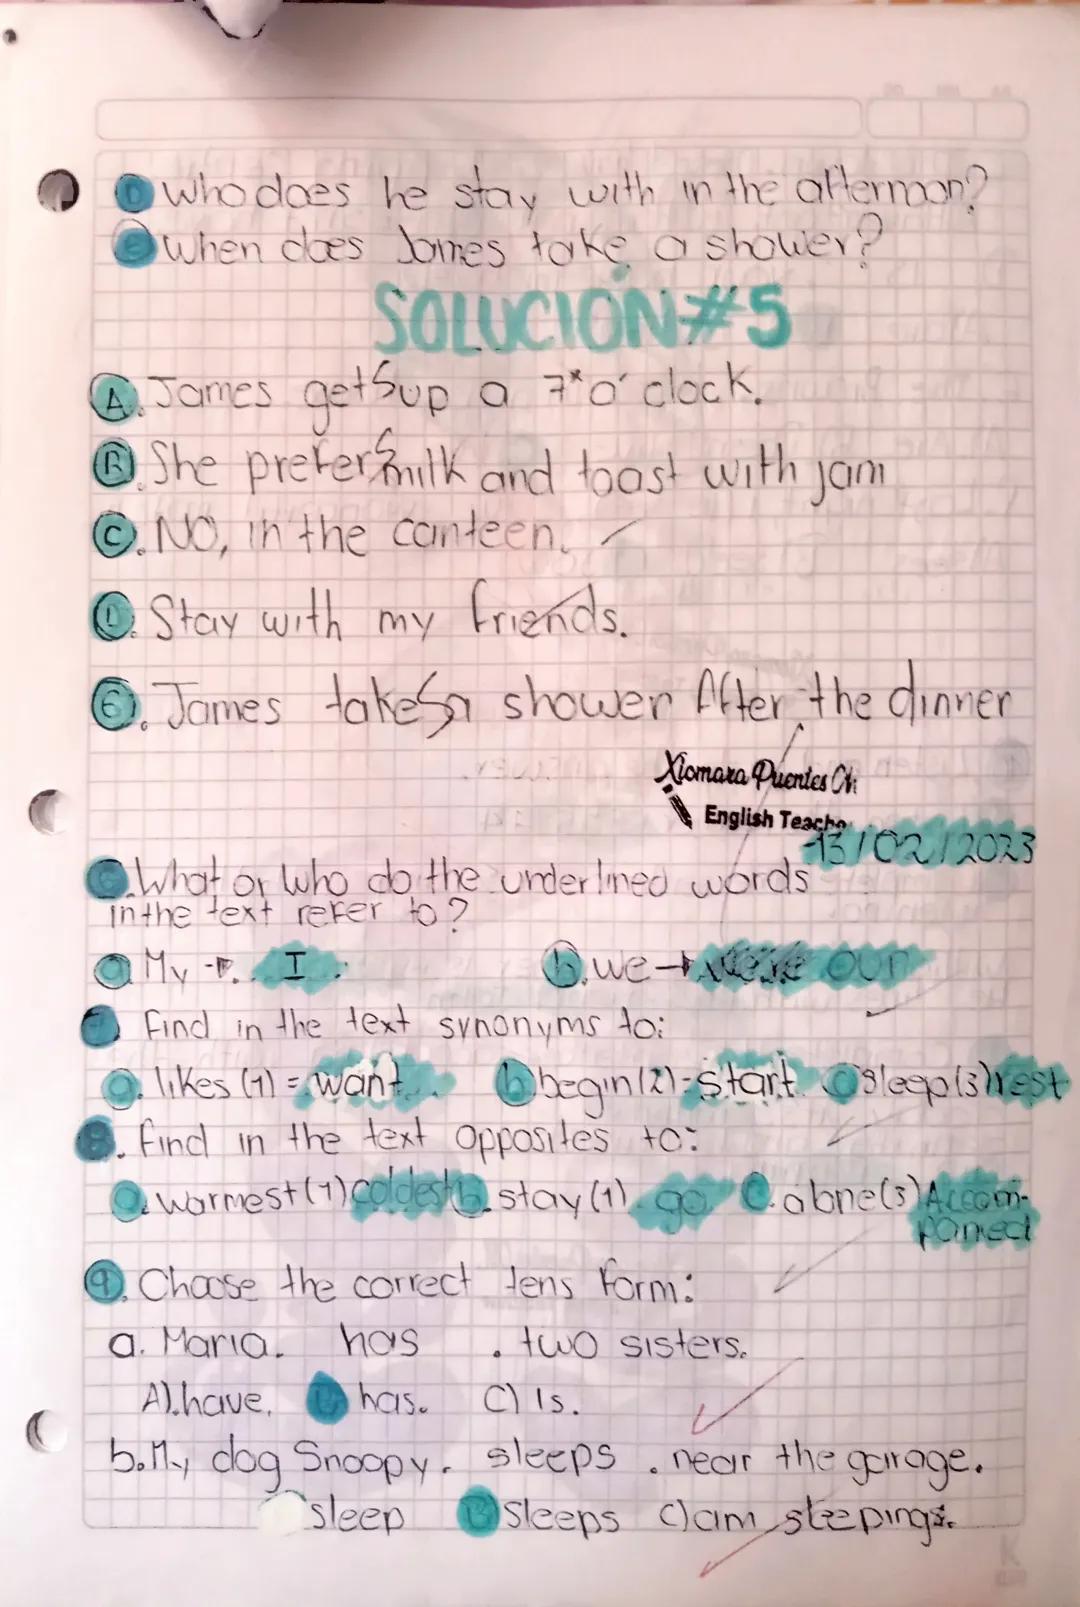 D Who does he stay with in the afternoon?
E When does James take a shower?
SOLUCIÓN#5
A. James gets up a 7* o' clock.
B. She prefers milk and toast with jam
C. NO, in the canteen.
D. Stay with my friends.
E. James takes a shower After the dinner
Xiomara Puentes Ch
English Teache
13/02/2023
6. What or Who do the underlined words
in the text refer to?
a. My → I. b. we → our
7. Find in the text synonyms to:
a. likes (1) = want. b begin (2) = start c sleep (3) rest
8. find in the text opposites to:
a. warmest (1) coldest b. stay (1). go. c. alone (3) Accom-
panied
9. Choose the correct tens form:
a. Maria. has . two sisters.
A). have. B has. C) Is.
b. My dog Snoopy. sleeps . near the garage.
sleep B Sleeps C) am sleepings.
K